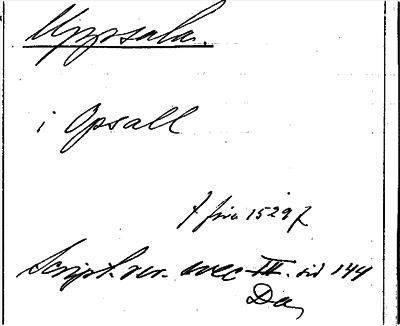 Uppsala.
i Opsall
[före 1529]
Script. rer. svec. III. sid 144
Da,